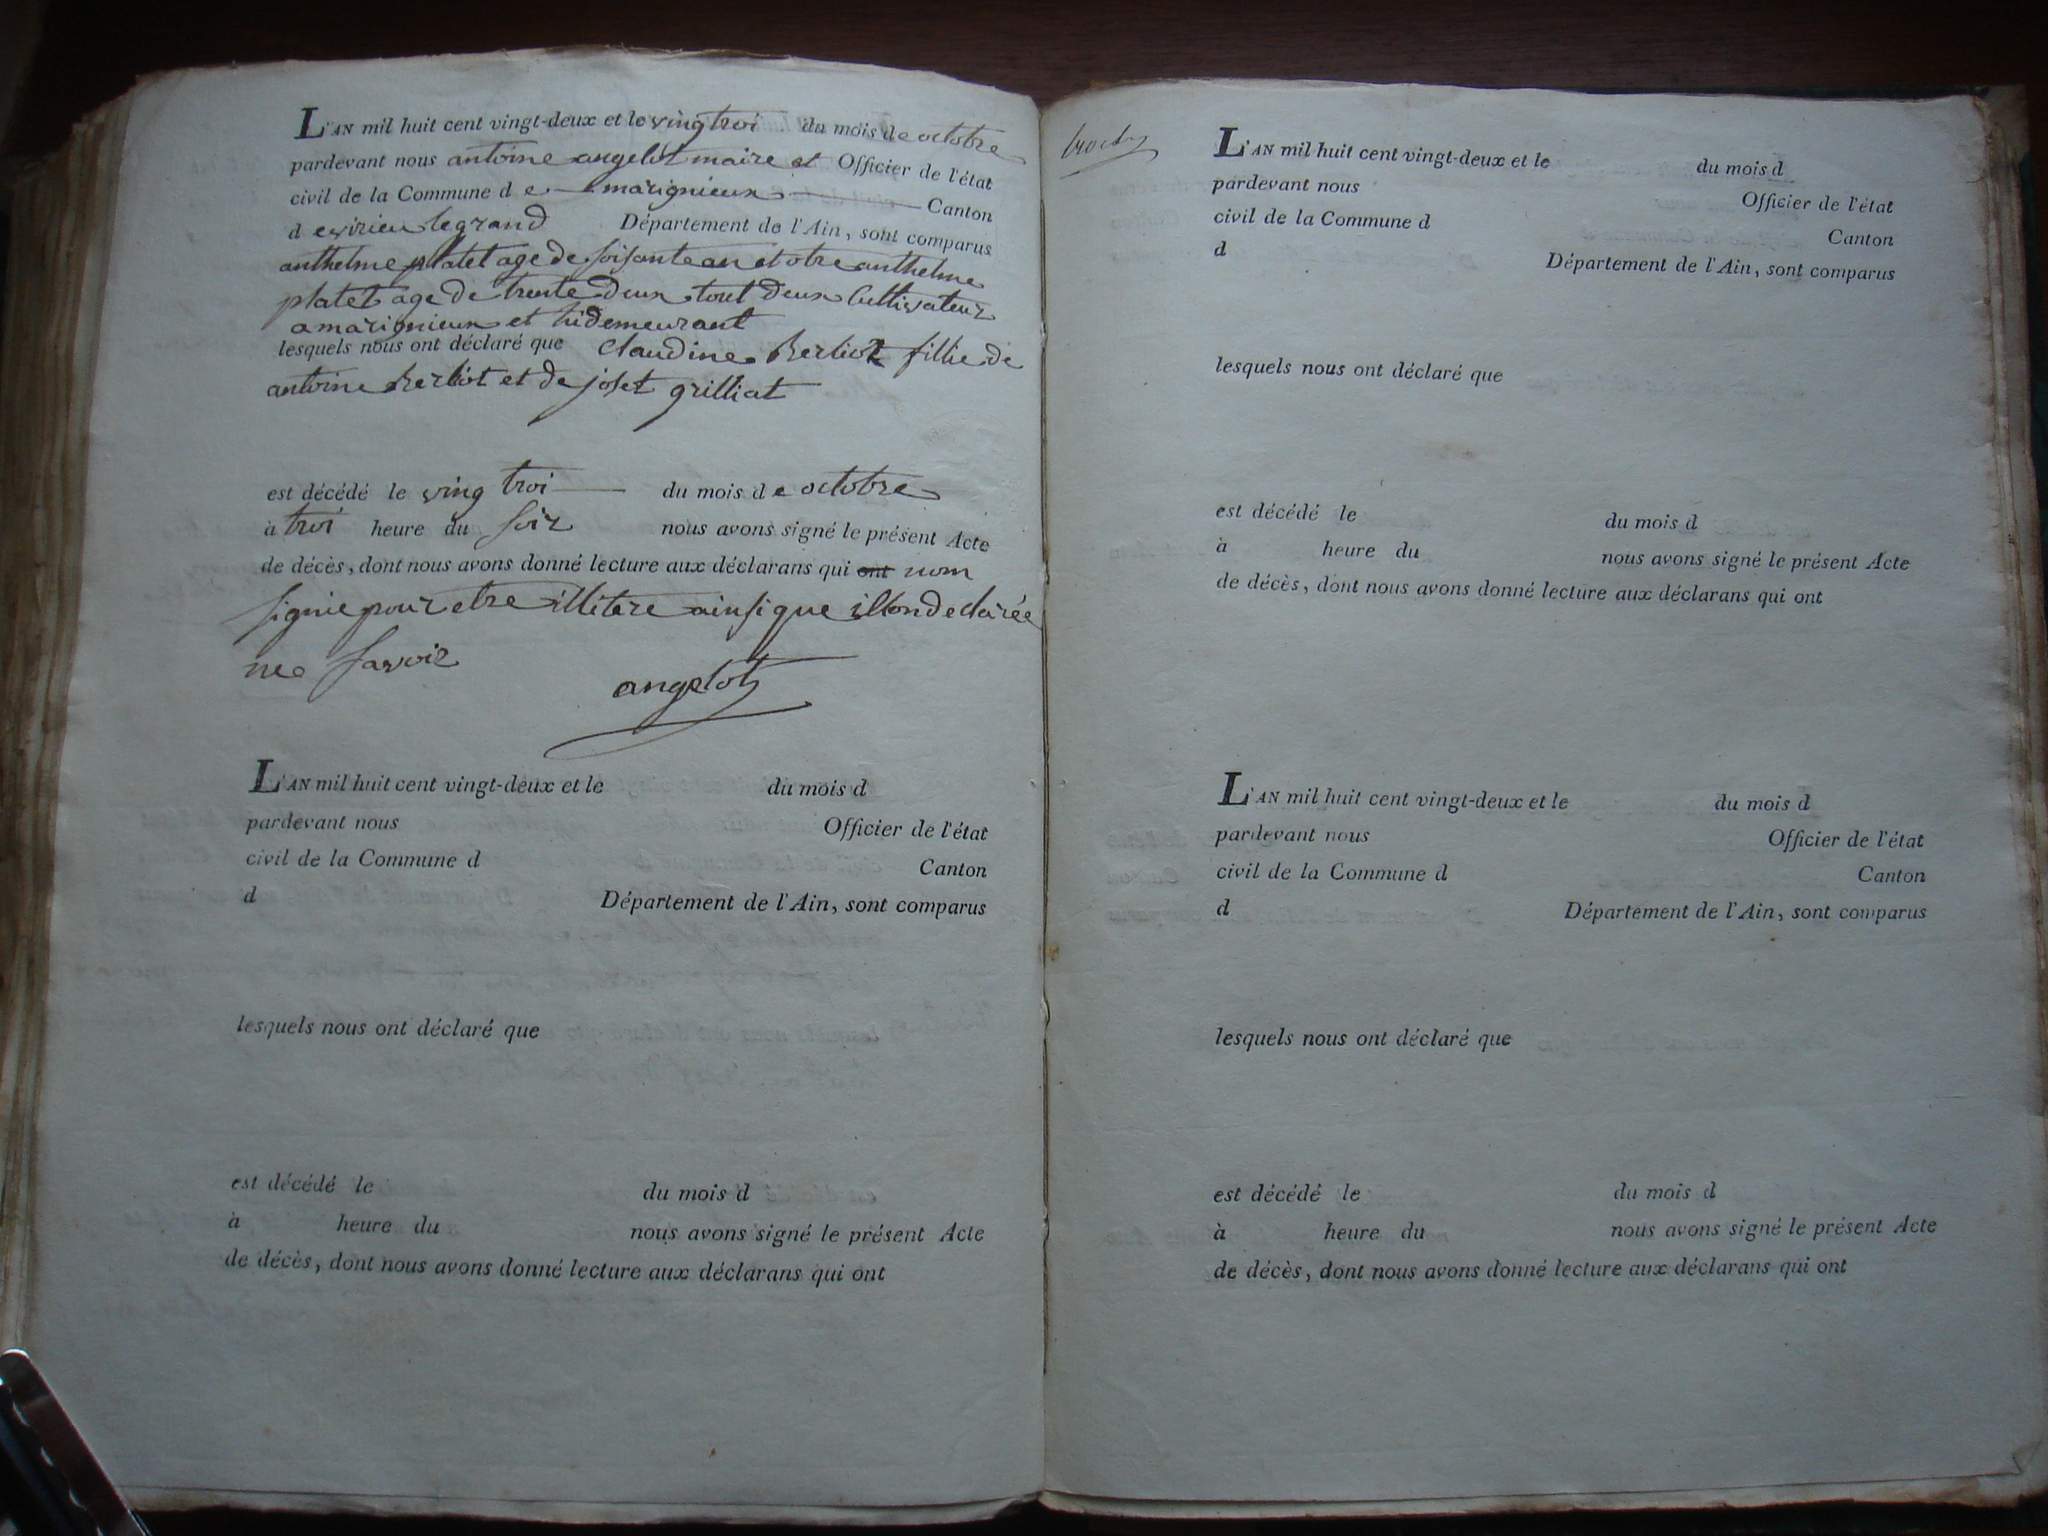 L'AN mil huit cent vingt-deux et le ving troi du mois de octobre
pardevant nous antoine angelot maire et Officier de l'état
civil de la Commune d e marignieux Canton
d e virieu legrand Département de l'Ain, sont comparus
anthelme platet age de soisante an et otre anthelme
platet age de trente deux tout deux cultivateur
a marignieux et hi demeurant
lesquels nous ont déclaré que claudine Berliot fillie de
antoine Berliot et de joset grilliat
est décédé le ving troi du mois d e octobre
à troi heure du soir nous avons signé le présent Acte
de décès, dont nous avons donné lecture aux déclarans qui ont nom
signie pour etre illitere ainsi que il lon declarée
ne savoir
angelot
L'AN mil huit cent vingt-deux et le du mois d
pardevant nous Officier de l'état
civil de la Commune d Canton
d Département de l'Ain, sont comparus
lesquels nous ont déclaré que
est décédé le du mois d
à heure du nous avons signé le présent Acte
de décès, dont nous avons donné lecture aux déclarans qui ont
L'AN mil huit cent vingt-deux et le du mois d
pardevant nous Officier de l'état
civil de la Commune d Canton
d Département de l'Ain, sont comparus
lesquels nous ont déclaré que
est décédé le du mois d
à heure du nous avons signé le présent Acte
de décès, dont nous avons donné lecture aux déclarans qui ont
L'AN mil huit cent vingt-deux et le du mois d
pardevant nous Officier de l'état
civil de la Commune d Canton
d Département de l'Ain, sont comparus
lesquels nous ont déclaré que
est décédé le du mois d
à heure du nous avons signé le présent Acte
de décès, dont nous avons donné lecture aux déclarans qui ont